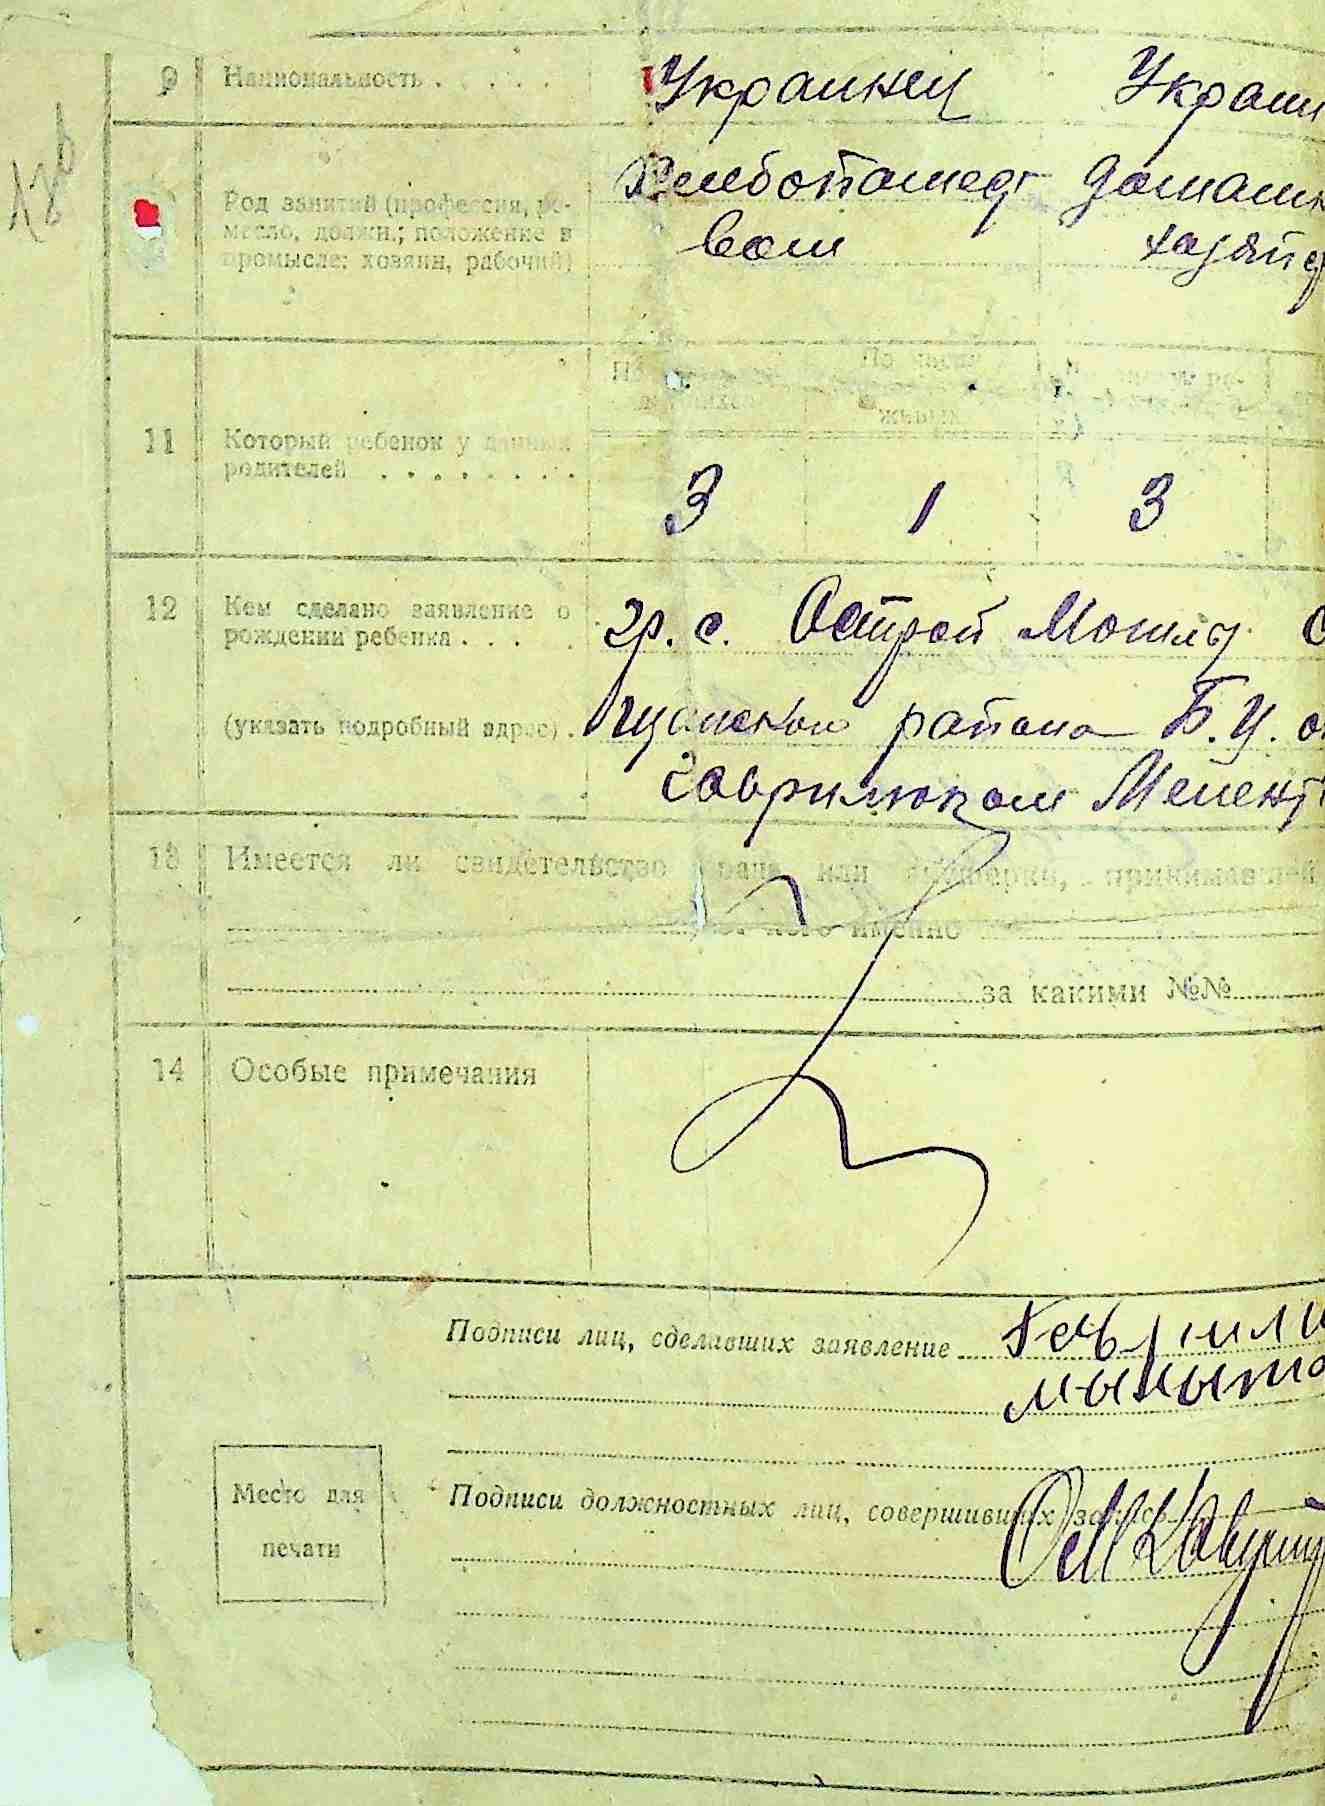 9 Национальность . . . . . Украинец Украин
Род занятий (профессия, ре-
месло, должн.; положение в
промысле: хозяин, рабочий)
Хлебопашед- Домашн
вом хозяйс
По числу
живых
11 Который ребенок у данных
родителей . . . . . . . .
3 1 3
12 Кем сделано заявление о
рождении ребенка . . . .
гр. с. Острой Могилы С
(указать подробный адрес) . района Б.Ц. о
Гаврилюком
13 Имеется ли свидетельство врача или акушерки, принимавшей
от кого именно
за какими №№
14 Особые примечания
Подписи лиц, сделавших заявление
Мыкыта
Место для
печати
Подписи должностных лиц, совершивших запись